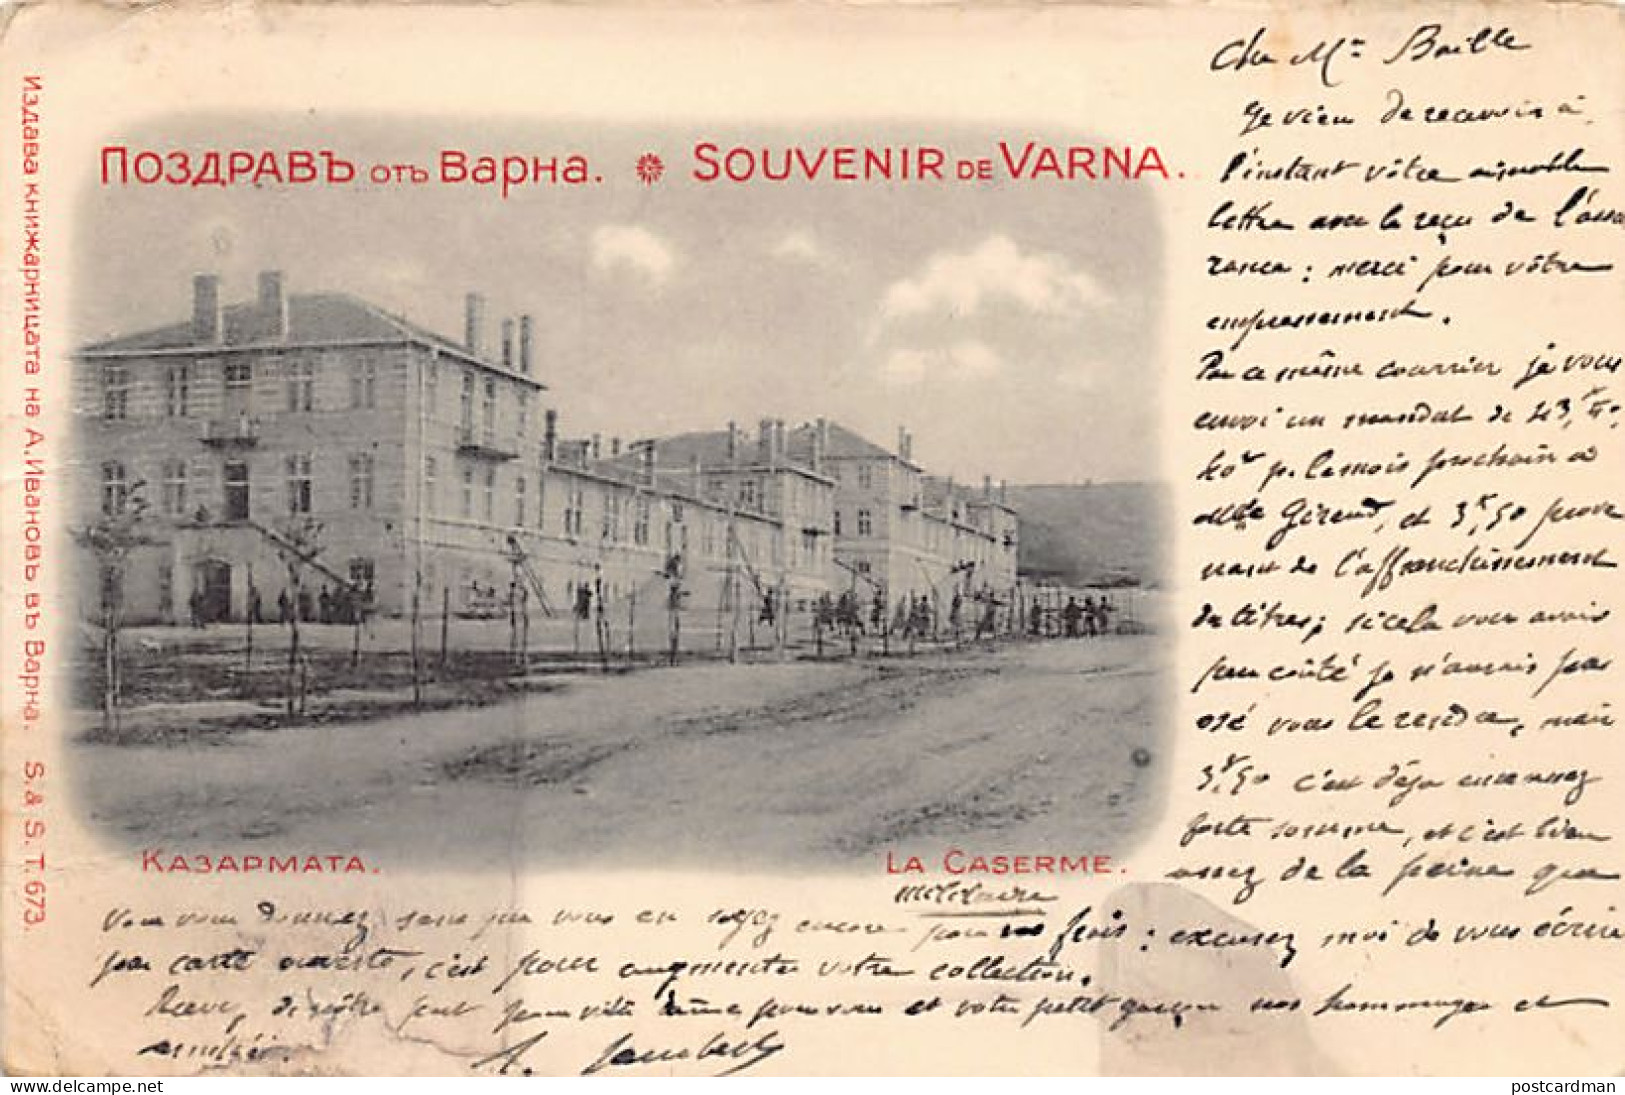 ПОЗДРАВЪ отъ Варна. SOUVENIR DE VARNA.
Издава книжарницата на А. Ивановъ въ Варна. S. & S. T. 673.
КАЗАРМАТА.
LA CASERME.
militaire
Cher Mr Baille
Je viens de recevoir à
l'instant vôtre aimable
lettre avec le reçu de l'assu
rance; merci pour vôtre
empressement.
Par ce même courrier je vous
envoi un mandat de 43,
40f p. le mois prochain à
Mlle Giraud, et 3f,50 prove
nant de l'affranchissement
du titres; si cela vous avais
peu coûté je n'aurais pas
osé vous le rendre, mais
3f.50 c'est déja une assez
forte somme, et c'est bien
assez de la peine que
vous vous donnez sans que vous en soyez encore pour vos frais: excusez moi de vous écrire
par carte ouverte, c'est pour augmenter votre collection.
Recevez, de vôtre part pour votre dame pour vous et votre petit garçon nos hommages et
amitiés. A. Jaubert
postcardman
delcampe.net